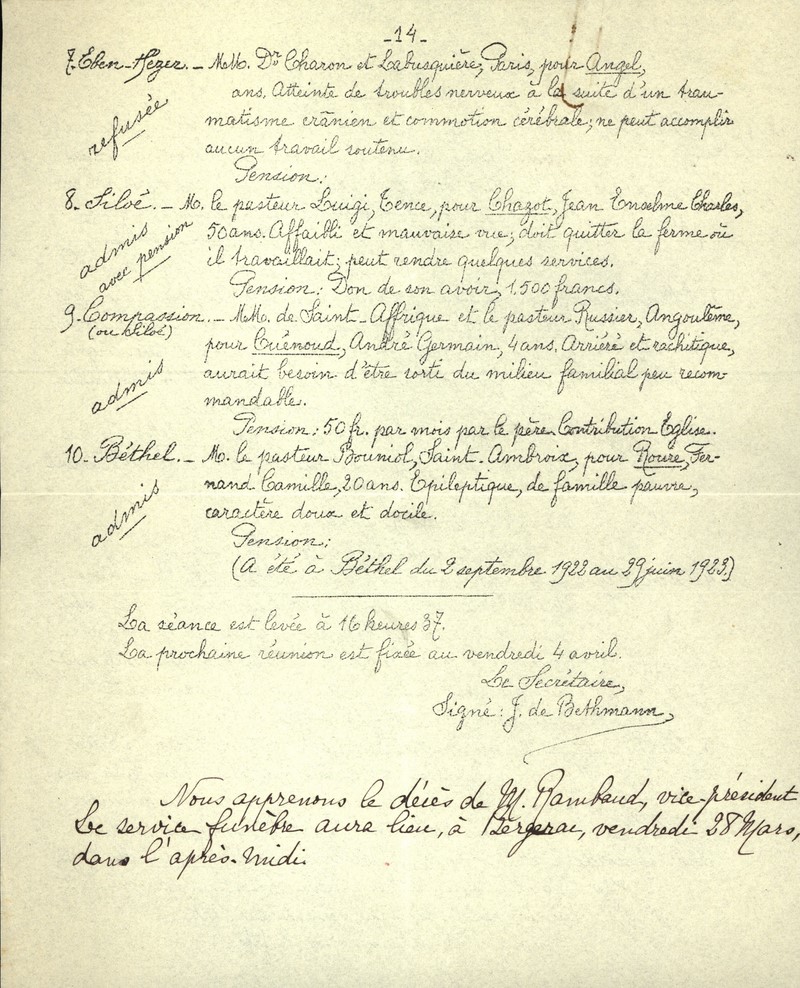 -14-
7. Eben-Hézer. - MM. Dr Charon et Labusquière, Paris, pour Angel,
ans. Atteinte de troubles nerveux à la suite d'un trau-
refusée
matisme crânien et commotion cérébrale; ne peut accomplir
aucun travail soutenu.
Pension:
8. Siloé. - M. le pasteur Luigi, Tence, pour Chazot, Jean Enselme Charles,
admis
avec pension
50 ans. Affaibli et mauvaise vue; doit quitter la ferme où
il travaillait; peut rendre quelques services.
Pension: Don de son avoir, 1.500 francs.
9. Compassion. - MM. de Saint-Affrique et le pasteur Russier, Angoulême,
(ou Siloé)
pour Cuénoud, André Germain, 4 ans. Arriéré et rachitique,
admis
aurait besoin d'être sorti du milieu familial peu recom-
mandable.
Pension: 50 fr. par mois par le père. Contribution Eglise.
10. Béthel. - M. le pasteur Bouniol, Saint-Ambroix, pour Roure, Fer-
admis
nand Camille, 20 ans. Epileptique, de famille pauvre,
caractère doux et docile.
Pension:
(A été à Béthel du 2 septembre 1922 au 29 juin 1923.)
La séance est levée à 16 heures 37.
La prochaine réunion est fixée au vendredi 4 avril.
Le Secrétaire,
Signé: J. de Bethmann,
Nous apprenons le décès de M. Rambaud, vice-président
Le service funèbre aura lieu, à Bergerac, vendredi 28 Mars,
dans l'après-midi.